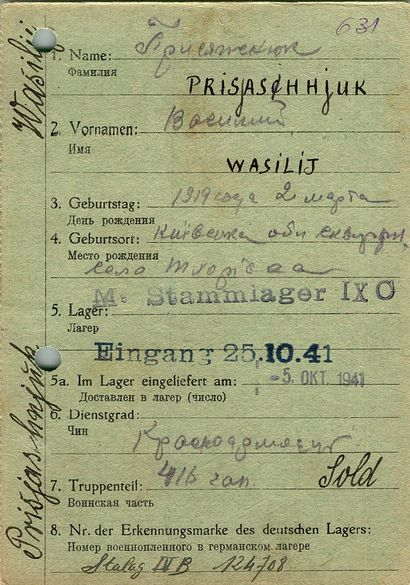 631
Wasilij
1. Name: Присяжнюк
Фамилия
PRISJASCHNJUK
2. Vornamen: Василий
Имя
WASILIJ
3. Geburtstag: 1919 года 2 марта
День рождения
4. Geburtsort: Київська обл
Место рождения
село
M.-Stammlager IX C
5. Lager:
Лагер
Eingang 25.10.41
5a. Im Lager eingeliefert am: -5. ОКТ. 1941
Доставлен в лагер (число)
6. Dienstgrad:
Чин
Красноармеец
7. Truppenteil: 416 гап. Sold
Воинская часть
8. Nr. der Erkennungsmarke des deutschen Lagers:
Номер военнопленного в германском лагере
Stalag IV B 124708
Prisjashnjuk